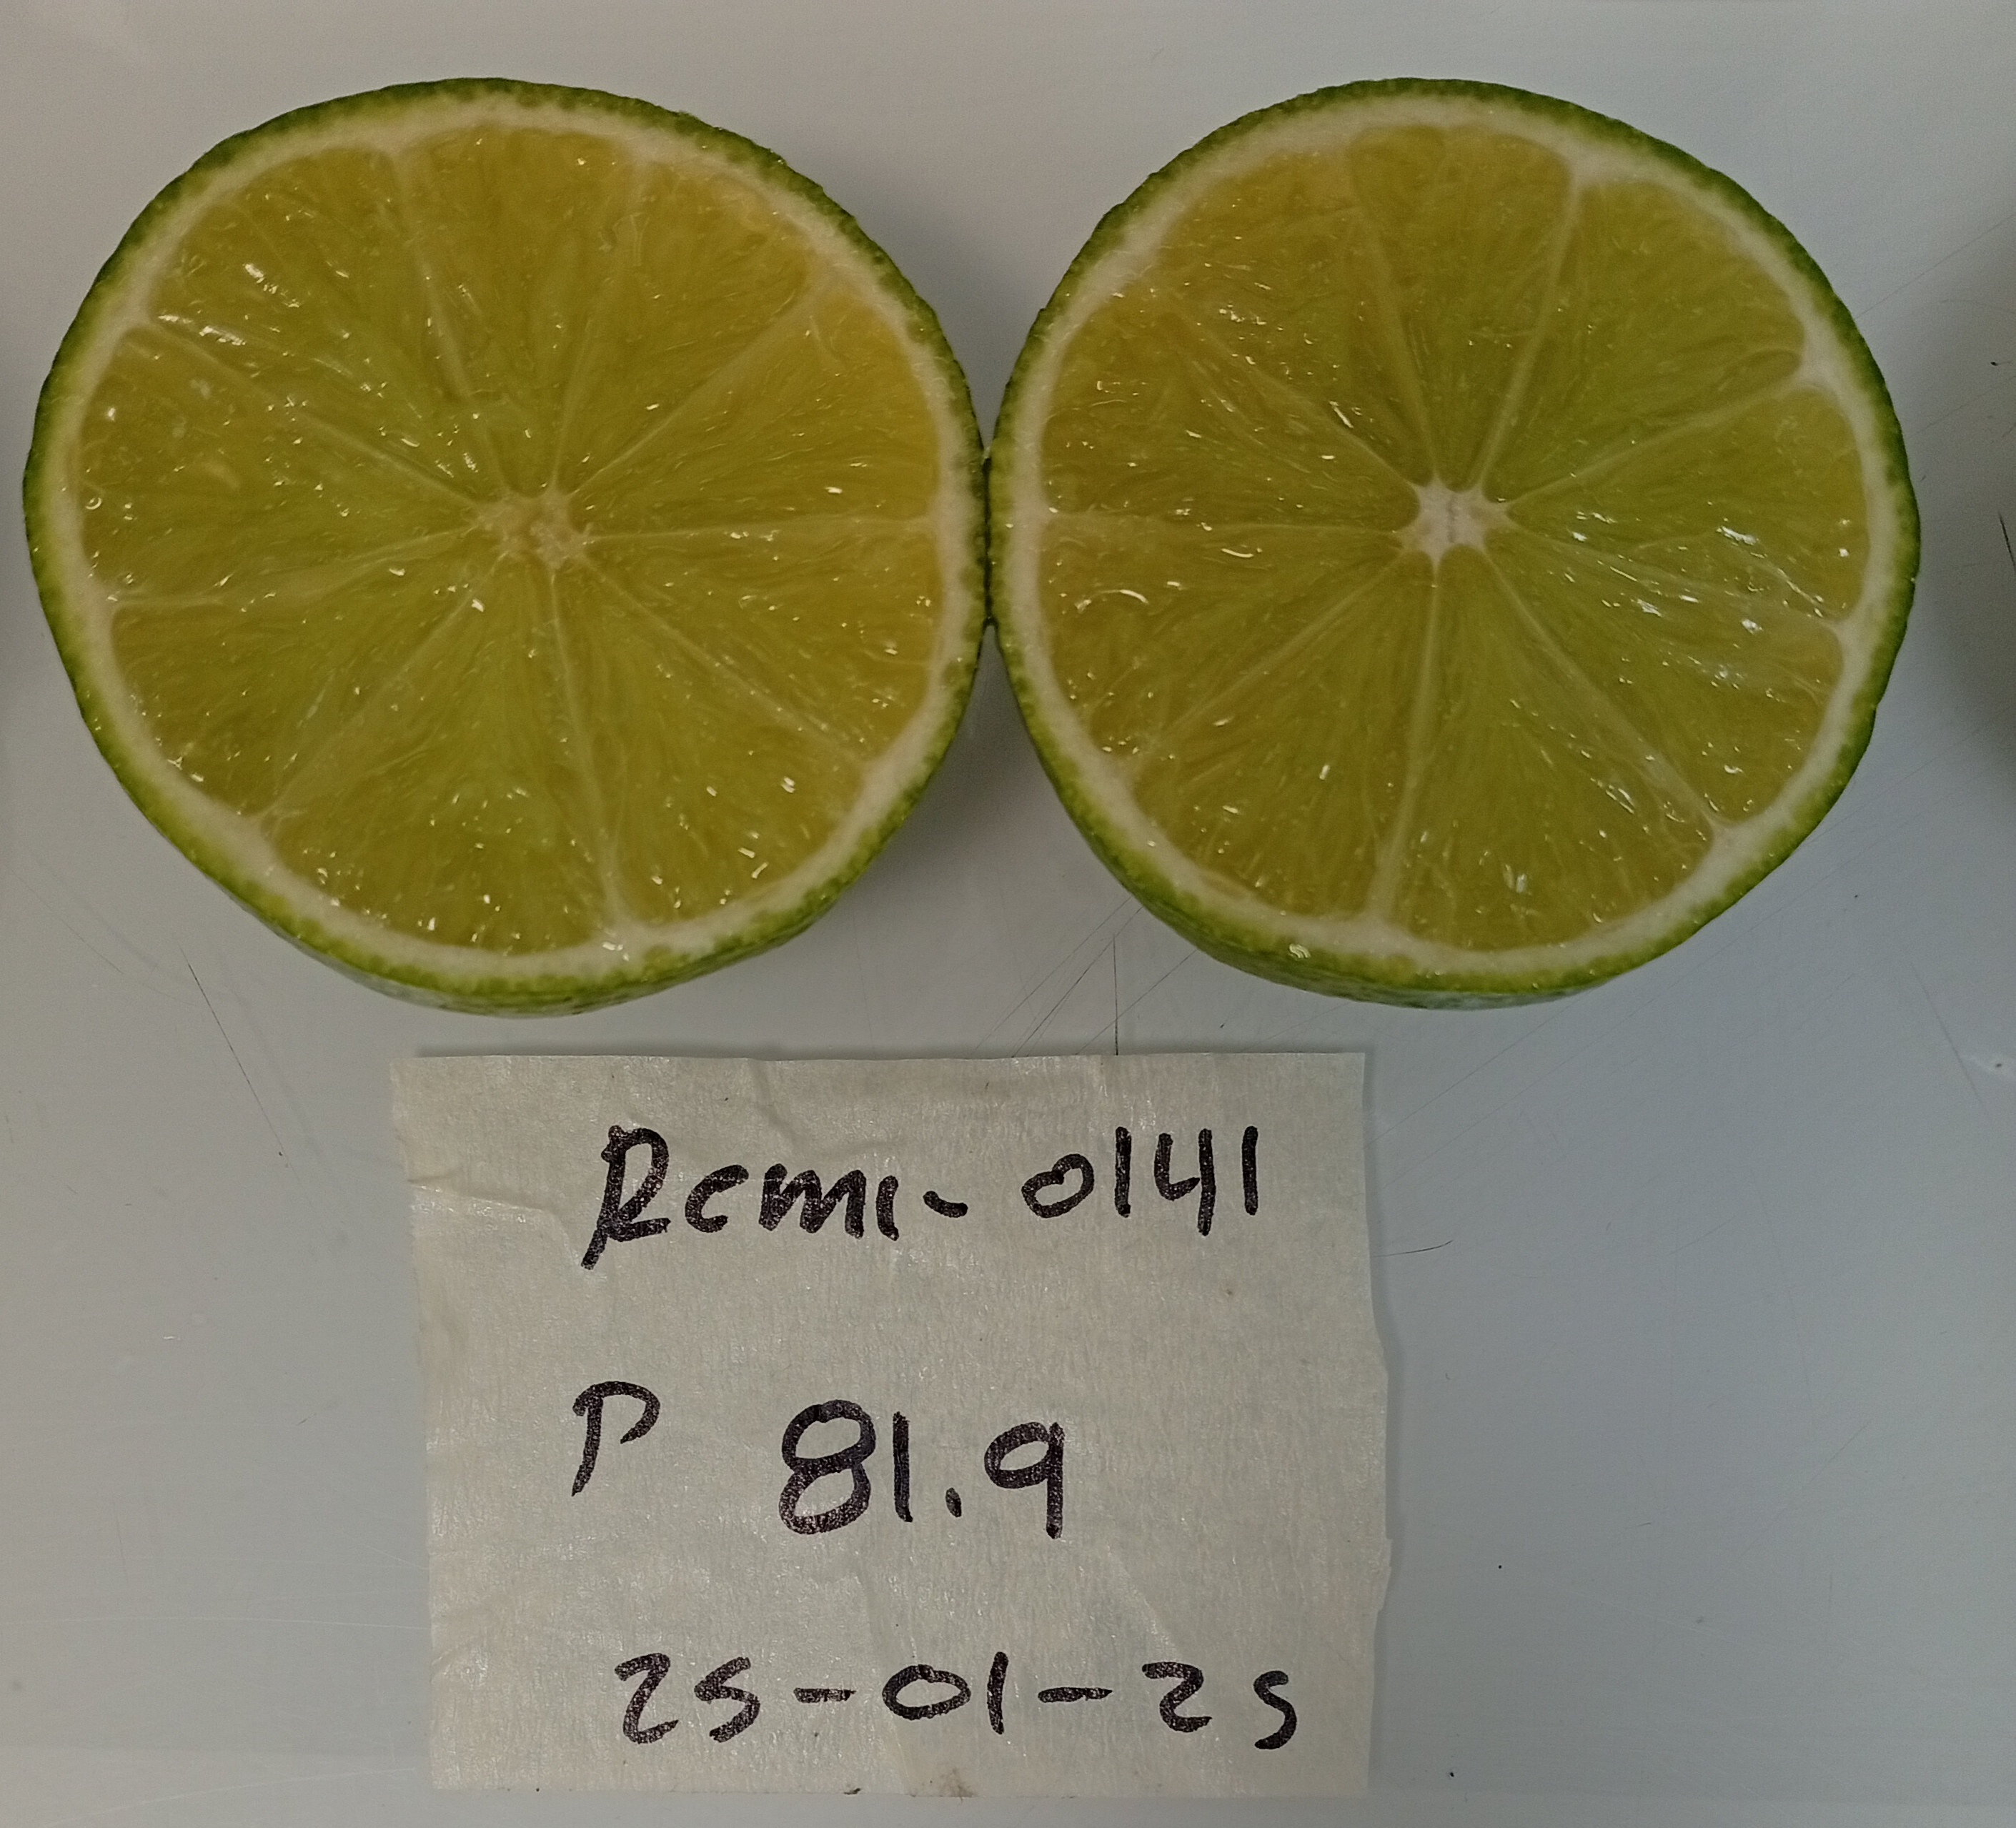 Rcmi- 0141
P 81.9
25-01-25